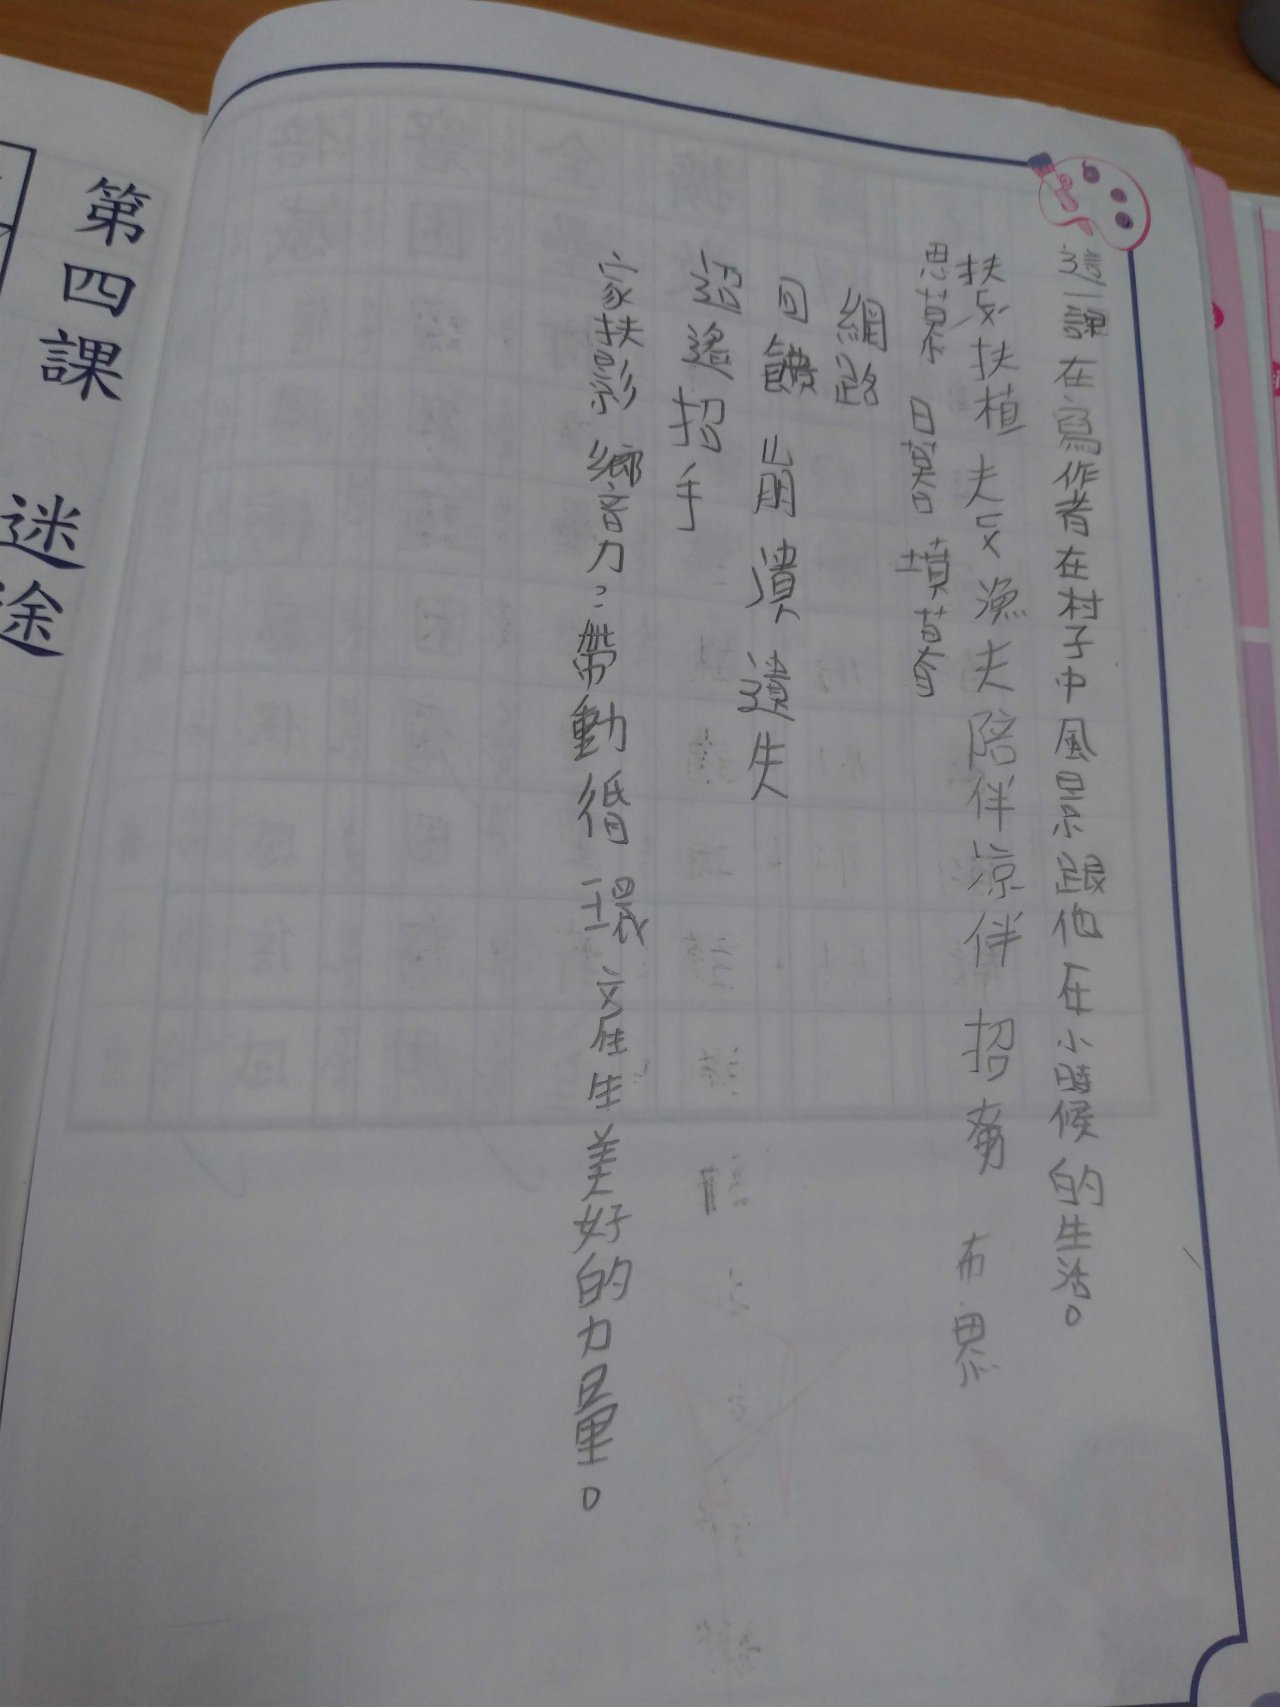 這一課在寫作者在村子中風景跟他在小時候的生活。
扶疏 扶植 夫 漁夫 陪伴 涼伴 招募 布恩
思慕 日暮 墳墓
網路
回饋 崩潰 遺失
迢遙 招手
家扶影響力：帶動循環產生美好的力量。
第四課 迷途